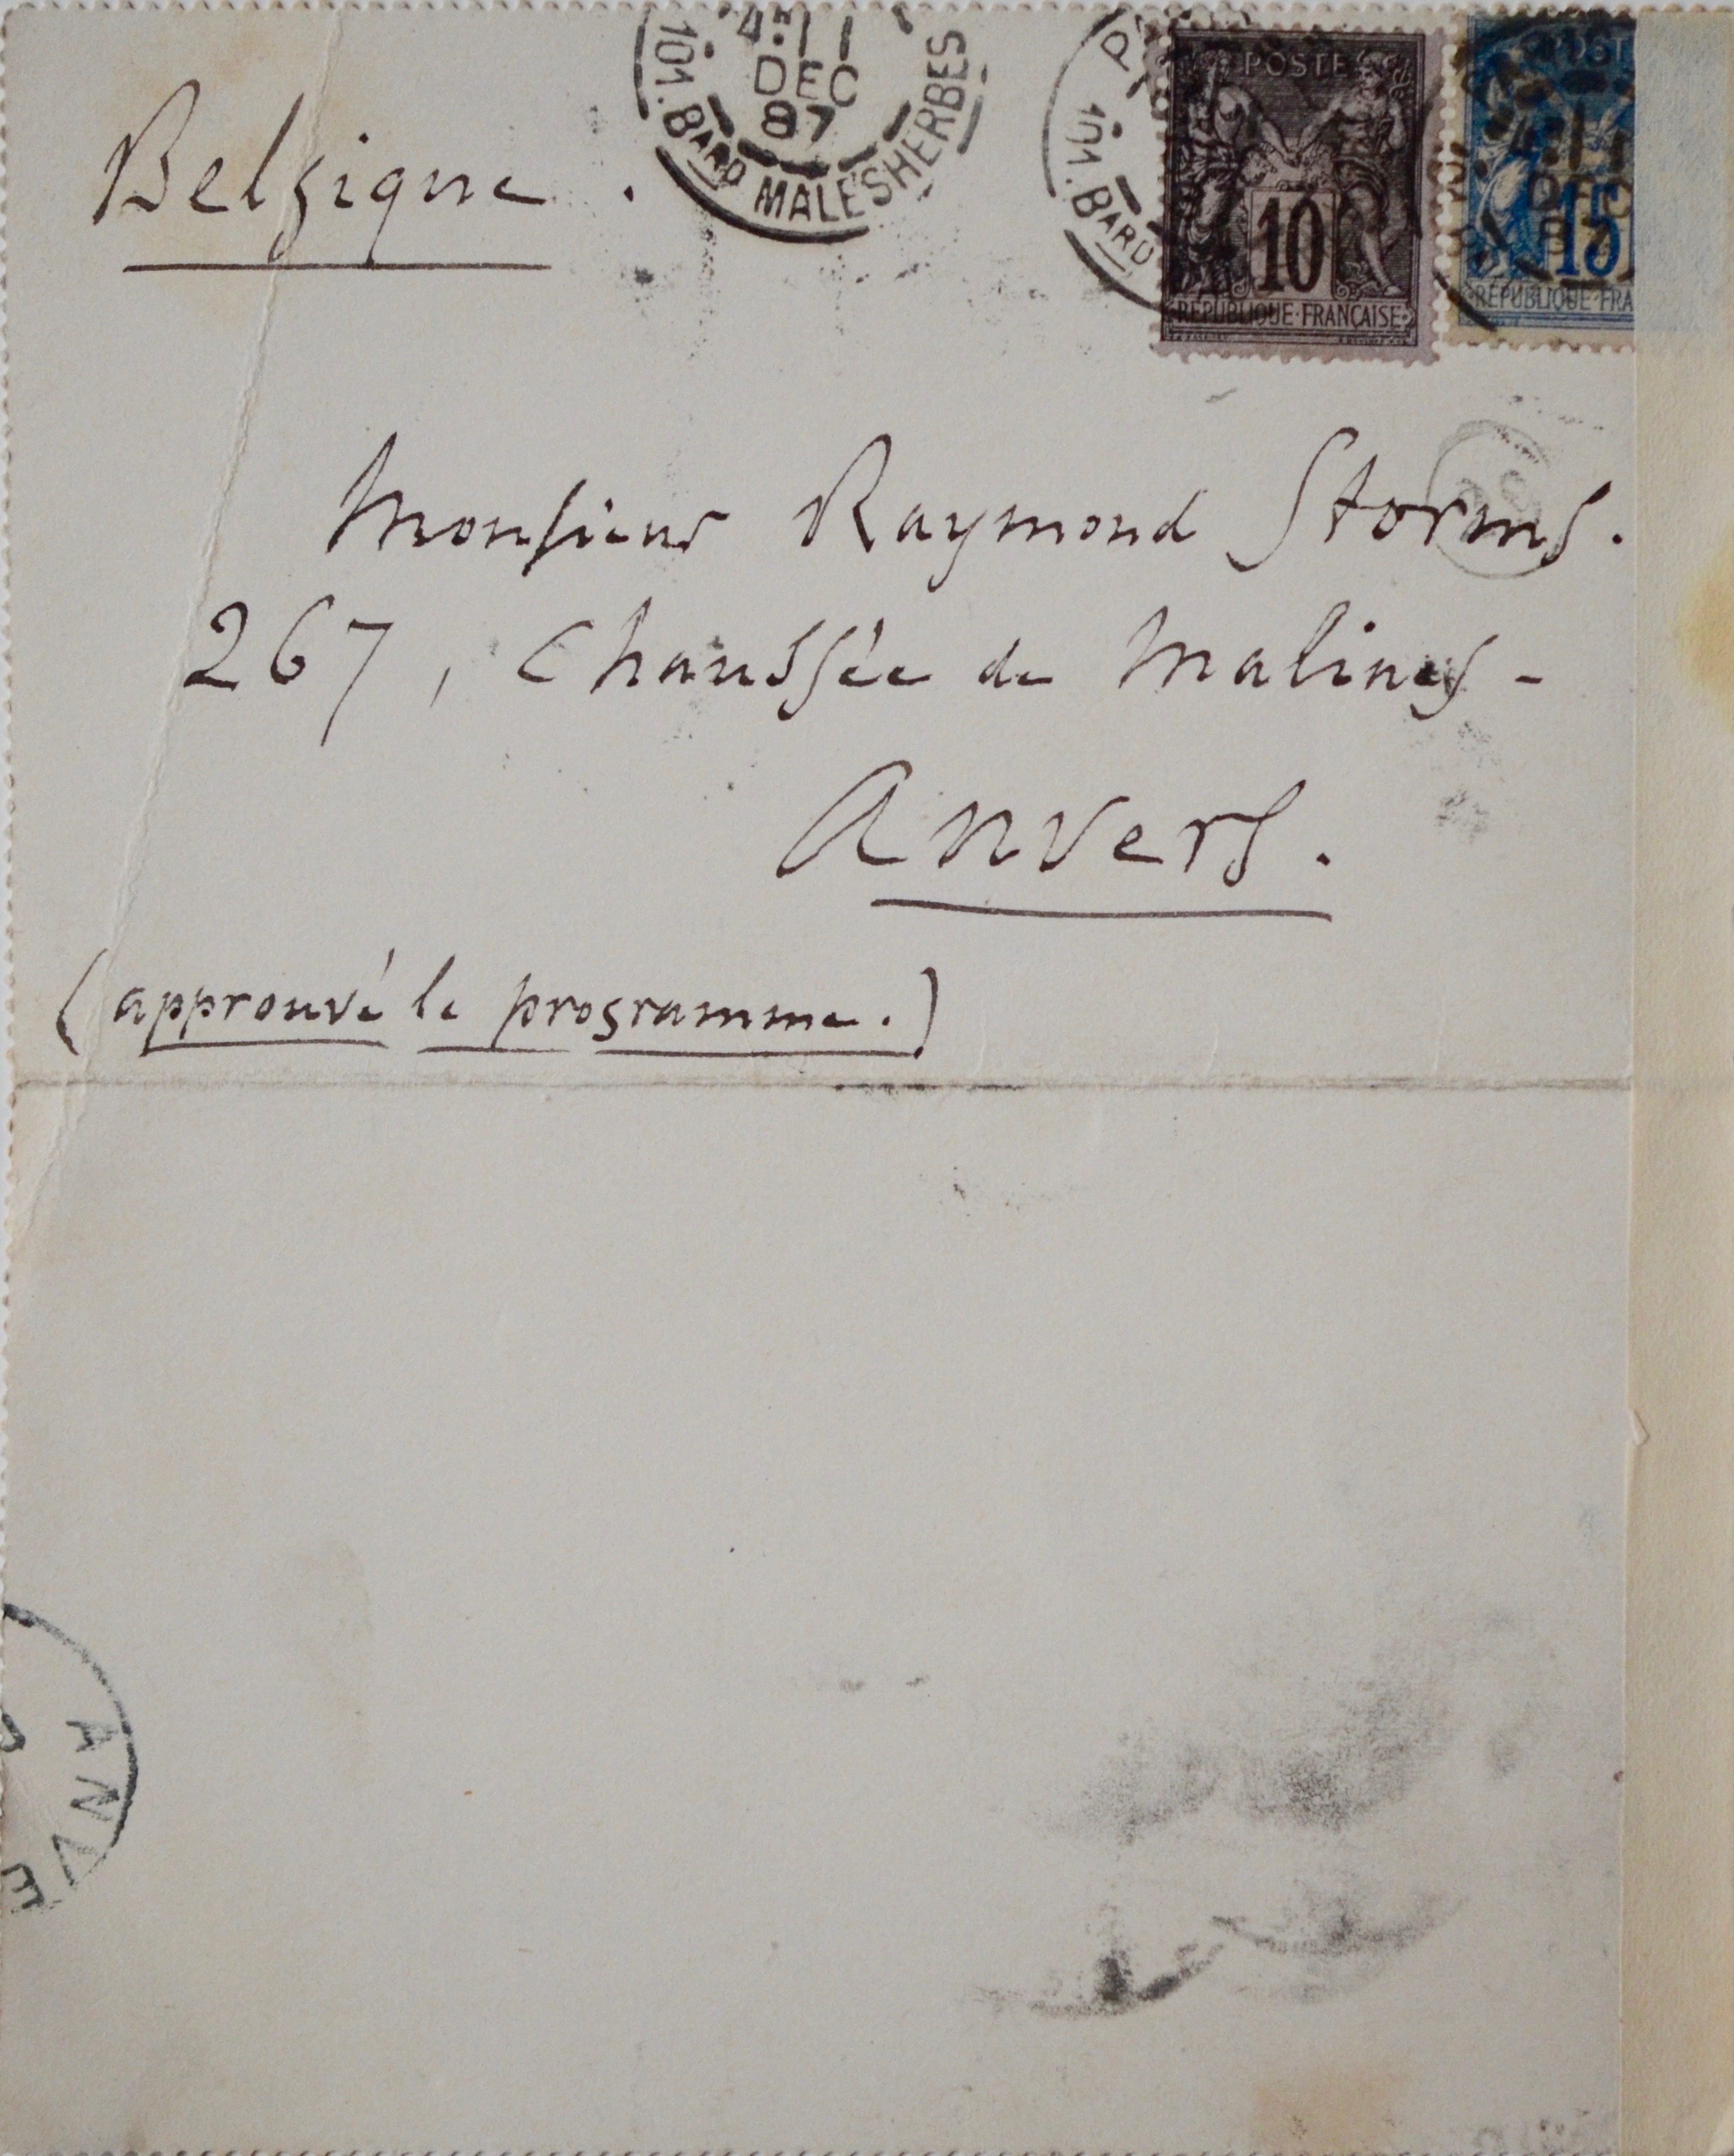 4ᴱ 11
DEC
87
101. BARD MALESHERBES
101. BARD
POSTE
10
RÉPUBLIQUE·FRANÇAISE
POST
DEC
15
RÉPUBLIQUE·FRA
Belgique.
Monsieur Raymond Storms.
267, Chaussée de Malines -
Anvers.
(approuvé le programme.)
ANVE